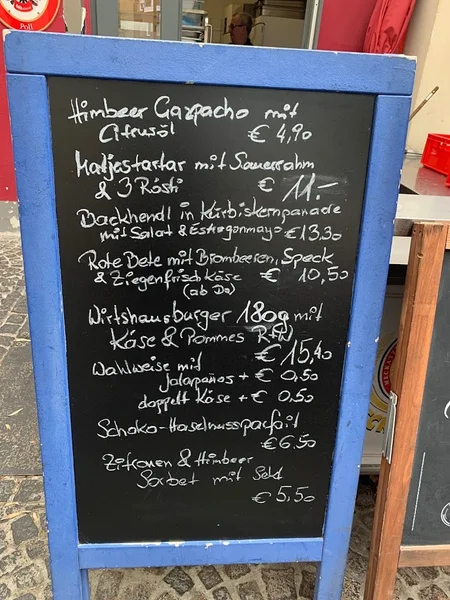 Himbeer Gazpacho mit
Citrusöl € 4,90
Matjestartar mit Sauerrahm
& 3 Rösti € 11.-
Backhendl in Kürbiskernpanade
mit Salat & Estragonmayo € 13,30
Rote Bete mit Brombeeren, Speck
& Ziegenfrischkäse € 10,50
Wirtshausburger 180g mit
Käse & Pommes
€ 15,40
Wahlweise mit
Jalapaños + € 0,50
doppelt Käse + € 0.50
Schoko-Haselnussparfait
€ 6.50
Zitronen & Himbeer
Sorbet mit Sekt
€ 5,50